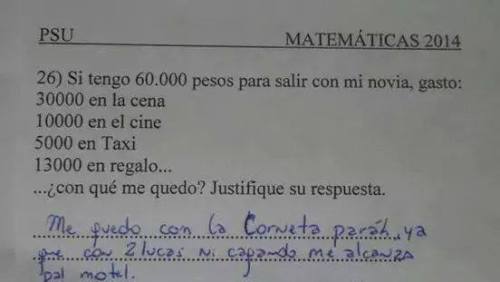 PSU MATEMÁTICAS 2014
26) Si tengo 60.000 pesos para salir con mi novia, gasto:
30000 en la cena
10000 en el cine
5000 en Taxi
13000 en regalo...
...¿con qué me quedo? Justifique su respuesta.
Me quedo con la Corneta paráh, ya
que con 2 lucas Ni capando me alcanza
pal motel.